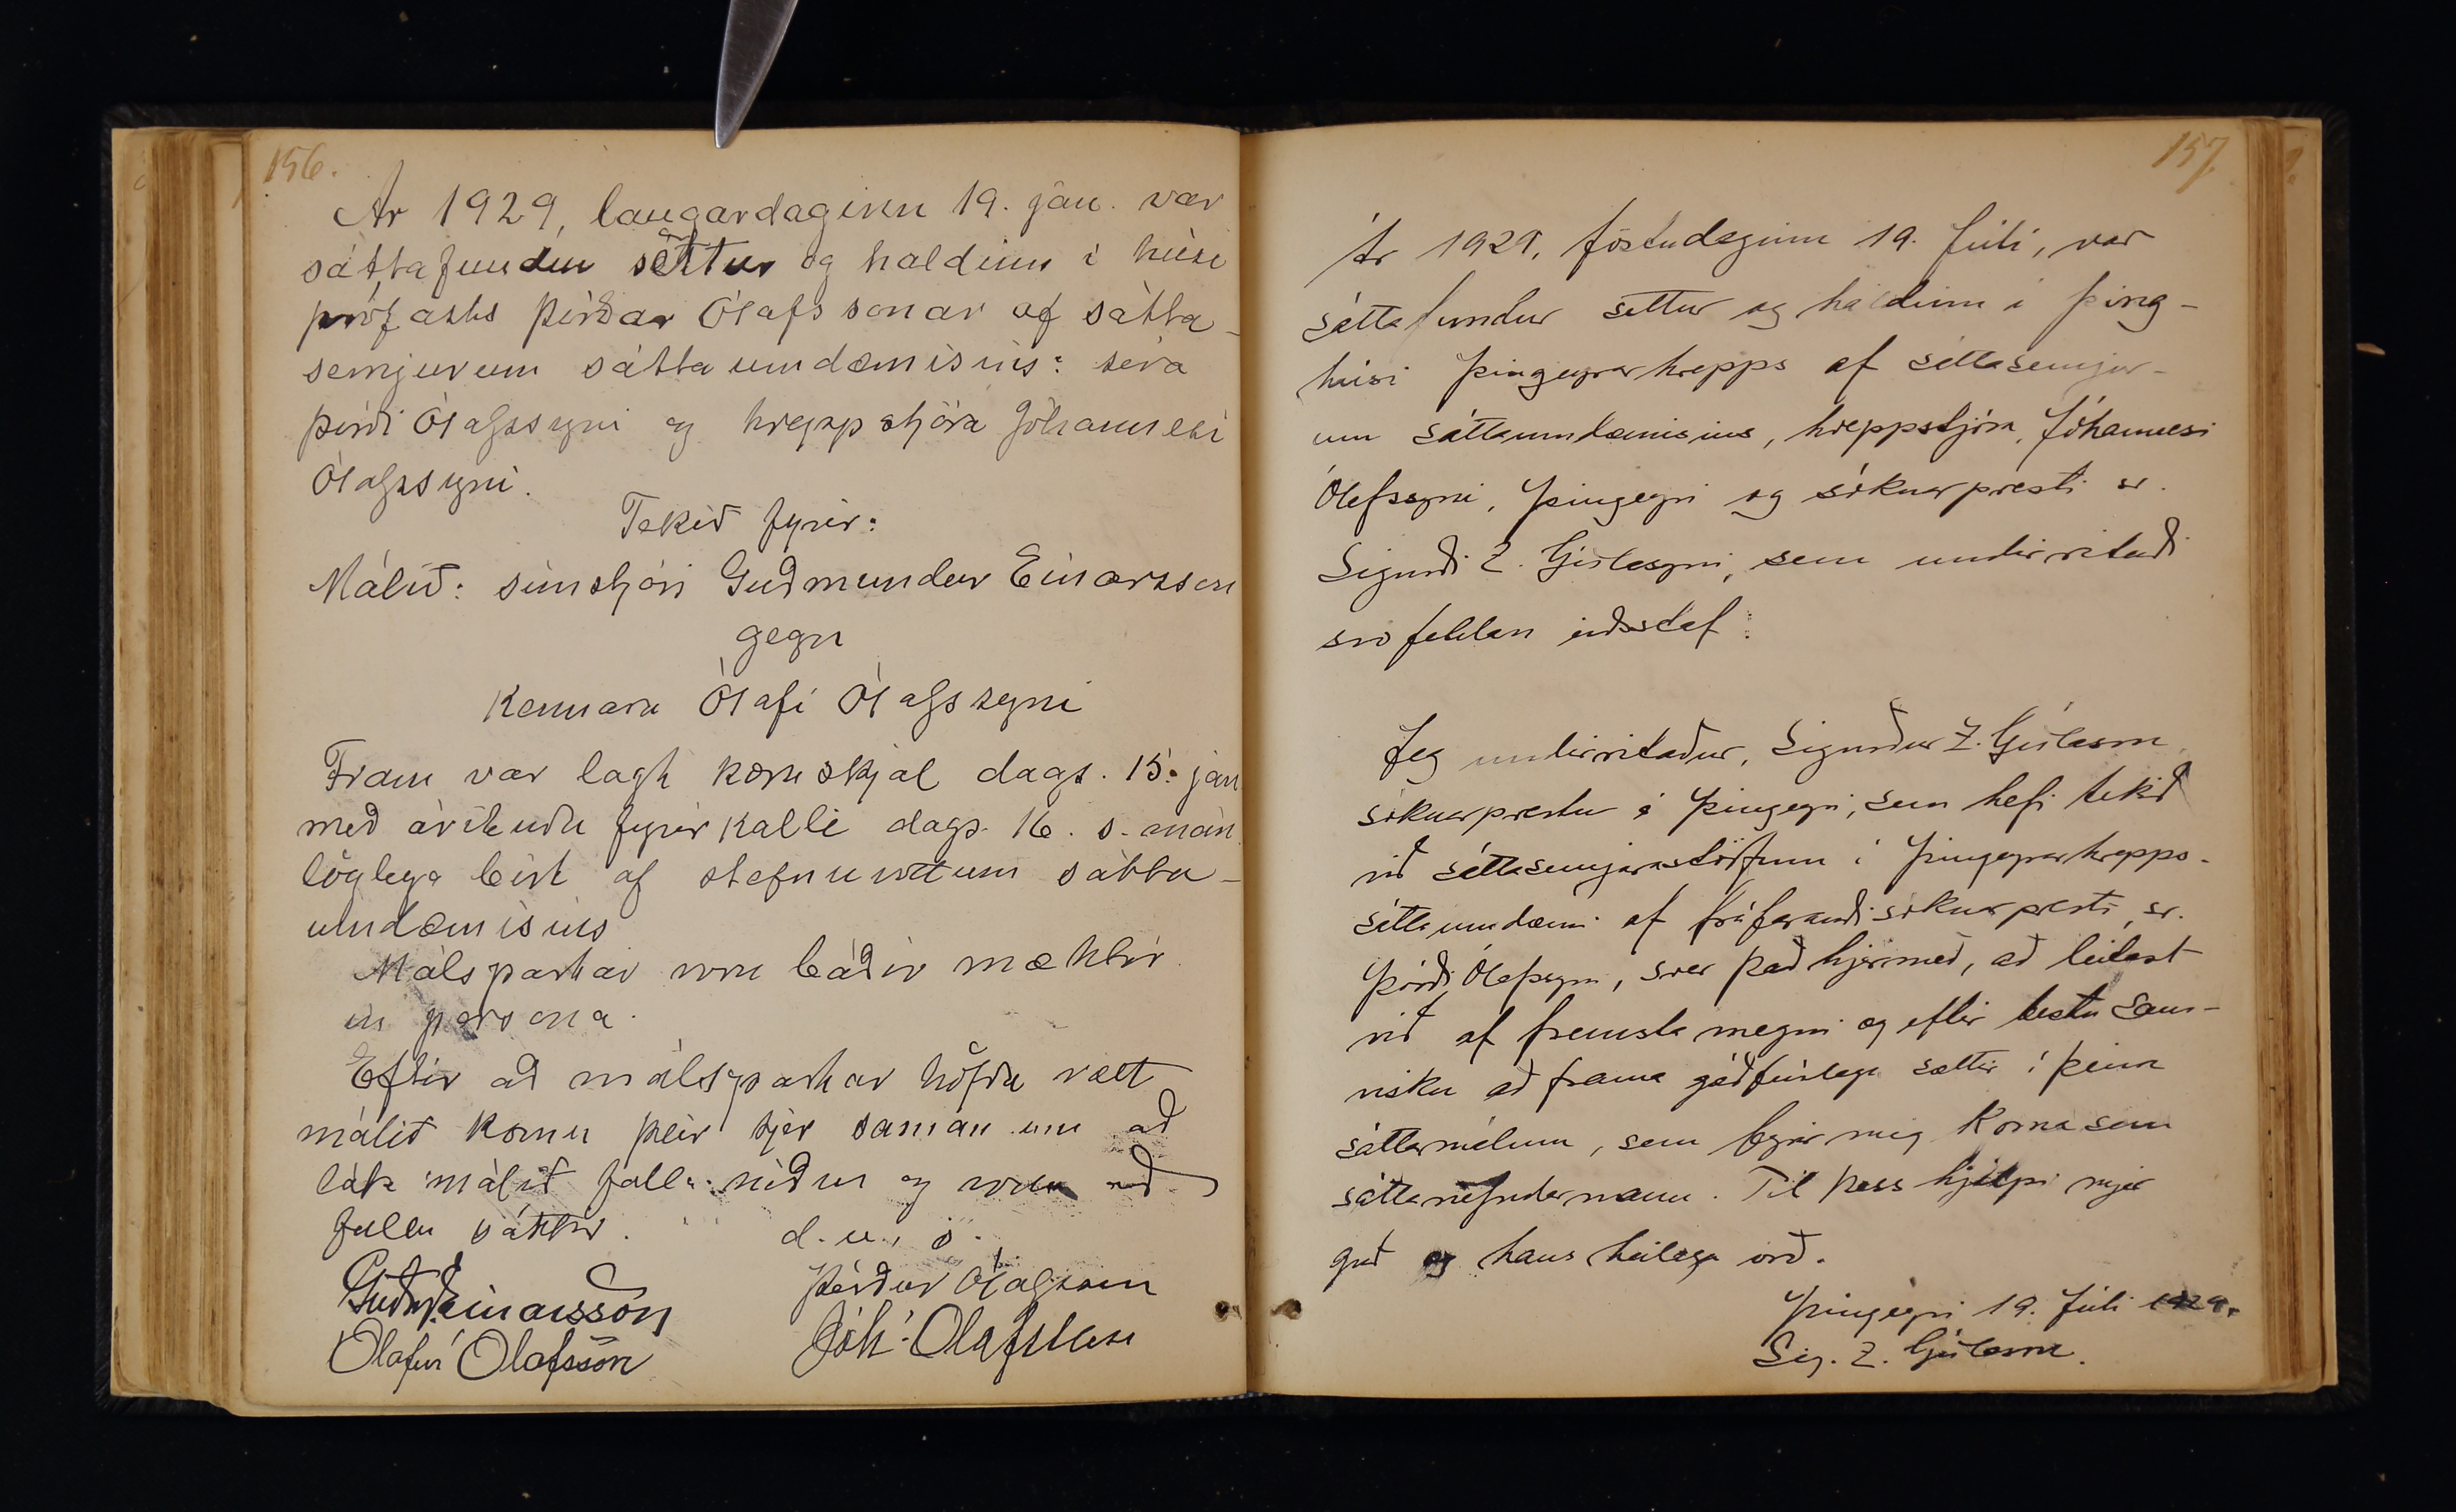 156.
Ár 1929, laugardaginn 19. jan. var
sáttafundur settur og haldinn í húsi
prófasts Þórðar Ólafssonar af sátta-
semjurum sáttaumdæmisins: séra
Þórði Ólafssyni og hreppstjóra Jóhannesi
Ólafssyni.
Tekið fyrir:
Málið: símstjóri Guðmundur Einarsson
gegn
Kennara Ólafi Ólafssyni
Fram var lagt kæruskjal dags. 15. jan
með árituðu fyrirkalli dags. 16. s. mán.
löglega birt af stefnuvottum sátta-
umdæmisins
Málspartar voru báðir mættir
in persona.
Eftir að málspartar höfðu rætt
málið komu þeir sjer saman um að
láta málið falla niður og voru að
fullu sáttir. d. u. s.
Guðm Einarsson Þórður Ólafsson
Ólafur Ólafsson Jóh: Ólafsson
157.
Ár 1929, föstudaginn 19. júlí, var
sáttafundur settur og haldinn í þing-
húsi Þingeyrarhrepps af sáttasemjur-
um sáttaumdæmisins, hreppstjóra, Jóhannesi
Ólafssyni, Þingeyri og sóknarpresti sr.
Sigurði Z. Gíslasyni, sem undirritaði
svofeldan eiðstaf:
Jeg undirritaður, Sigurður Z. Gíslason
sóknarprestur á Þingeyri, sem hefi tekið
við sáttasemjarastörfum í Þingeyrarhrepps-
sáttaumdæmi af fráfarandi sóknarpresti, sr.
Þórði Ólafssyni, sver það hjermeð, að leitast
við af fremsta megni og eftir bestu sam-
visku að frama góðfúslega sættir í þeim
sáttamálum, sem fyrir mig koma sem
sáttanefndarmann. Til þess hjálpi mjer
guð og hans heilaga orð.
Þingeyri 19. júlí 1929.
Sig. Z. Gíslason.